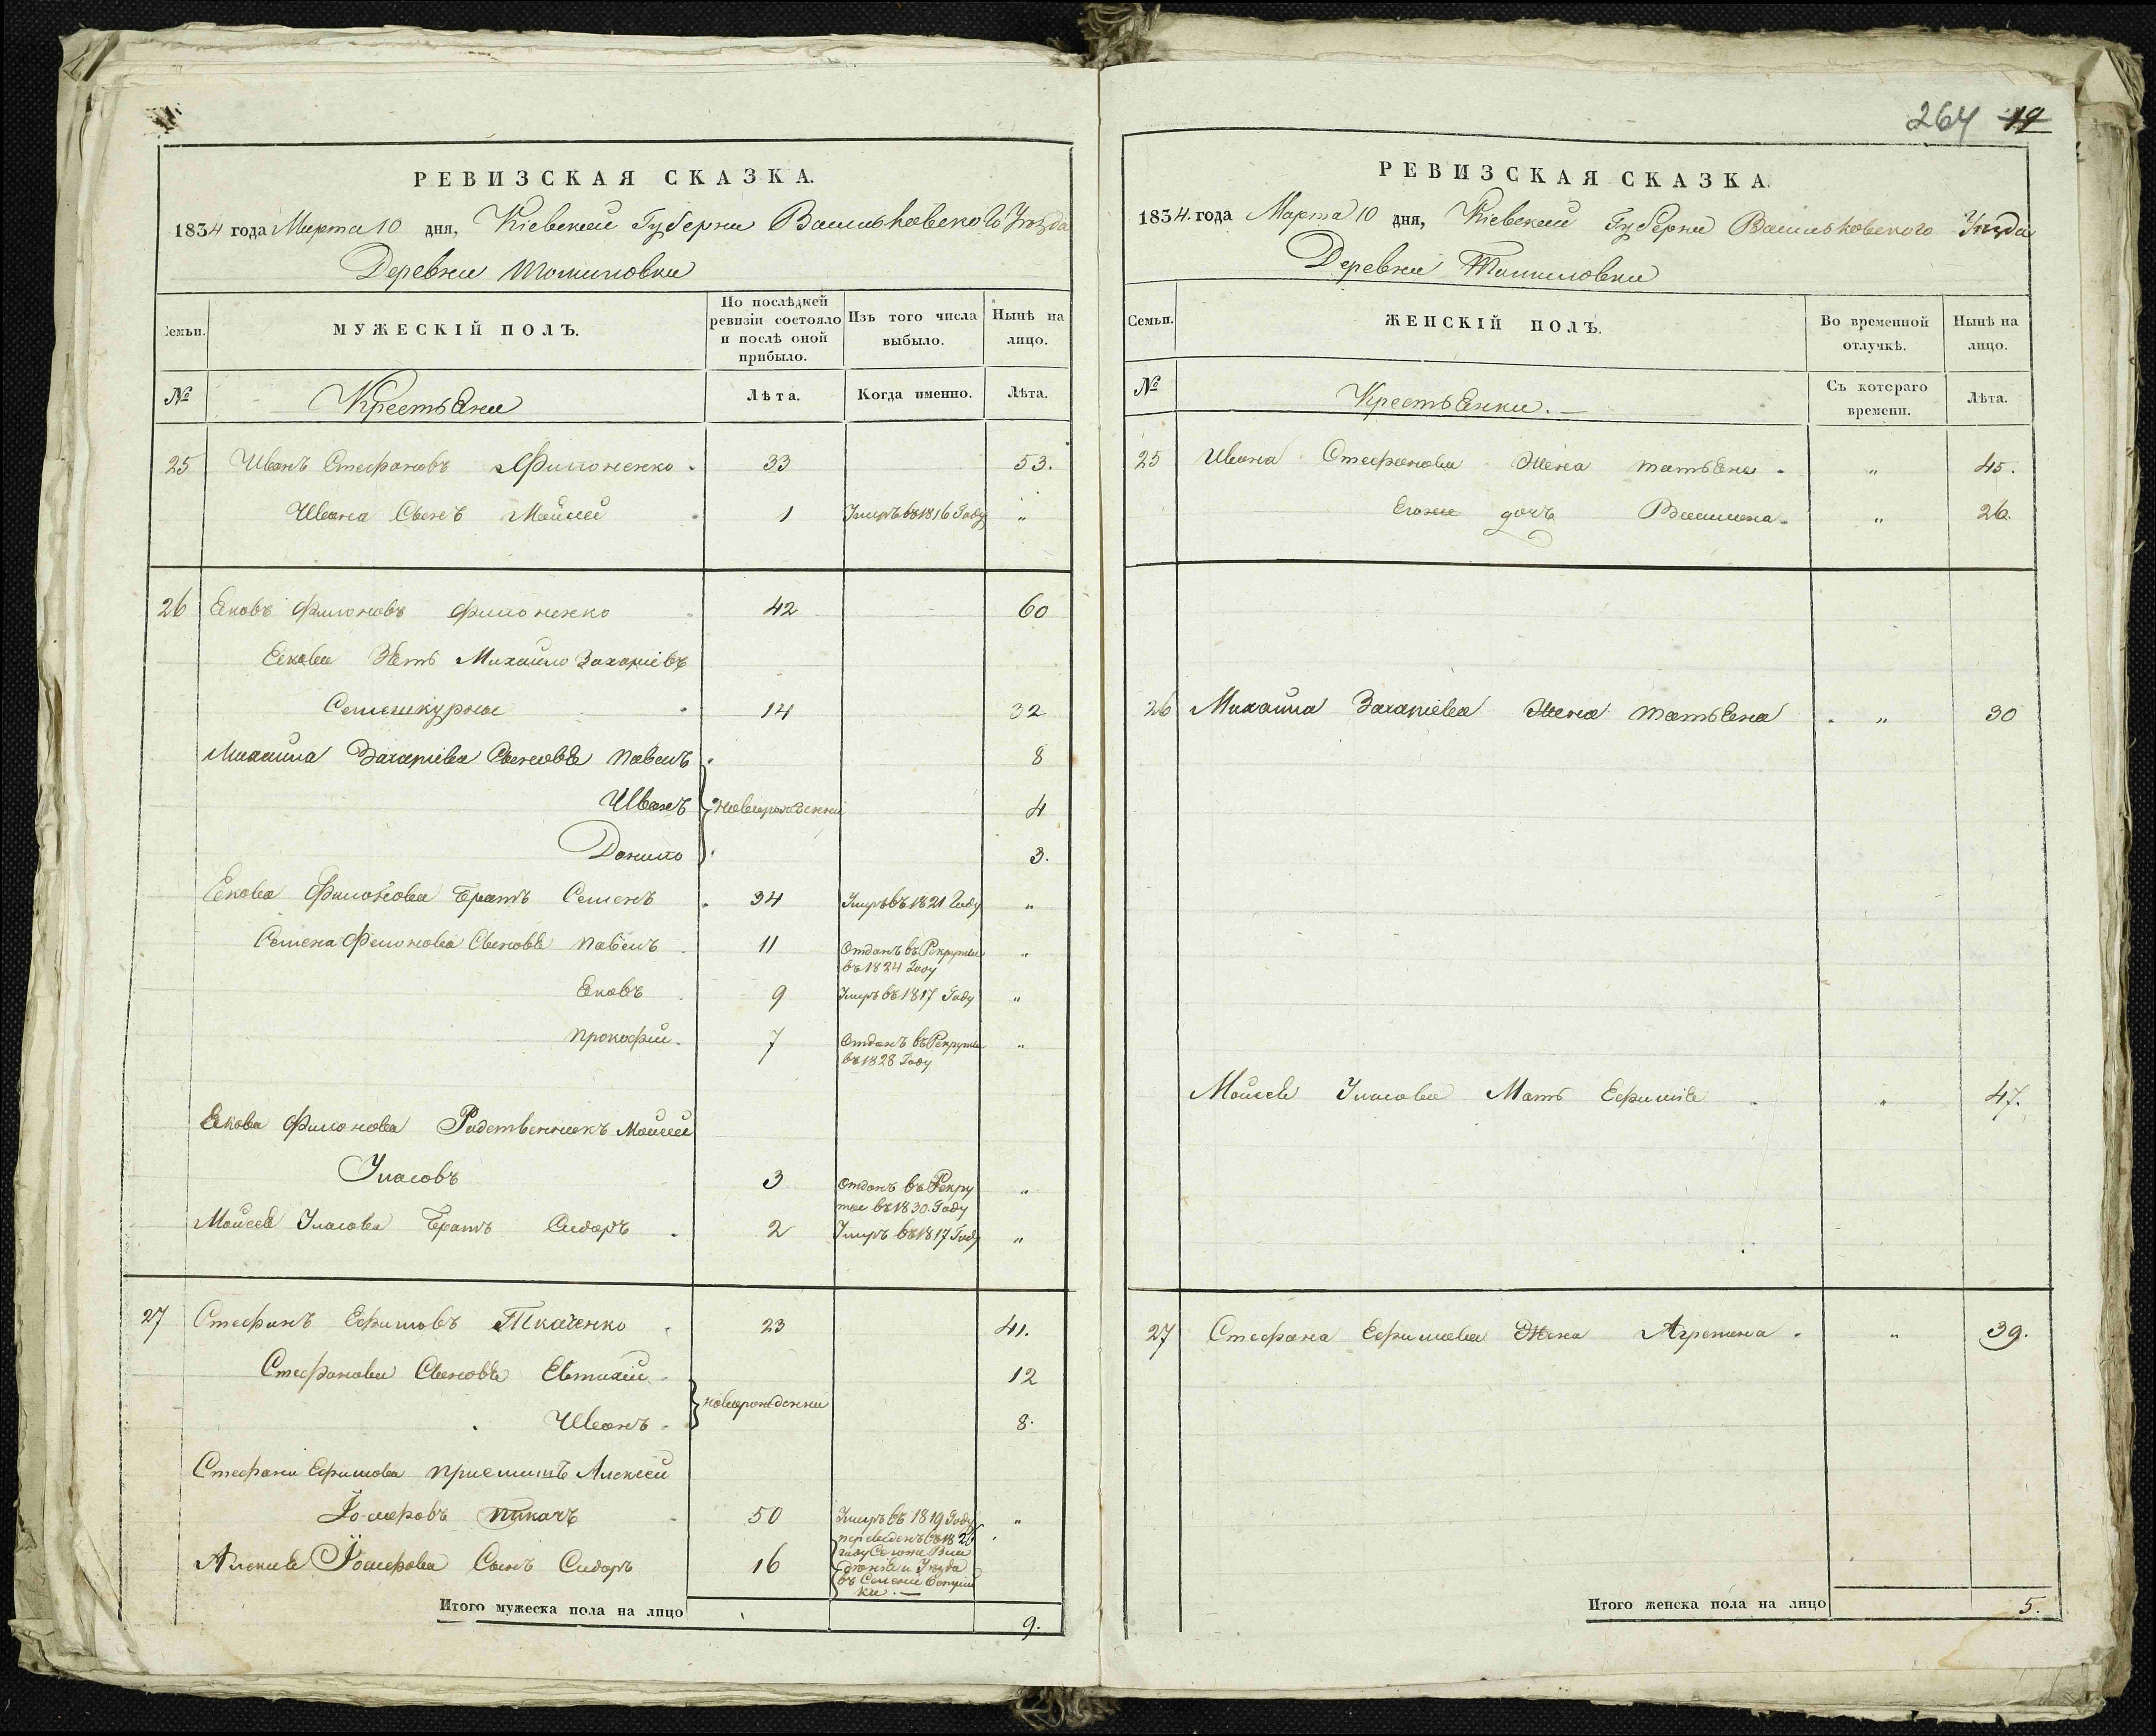 РЕВИЗСКАЯ СКАЗКА.
1834 года Марта 10 дня, Кіевской Губерни Васильковского Уезда
Деревни Томиловки
Семьи.
МУЖЕСКІЙ ПОЛЪ.
По послѣдней ревизіи состояло и послѣ оной прибыло.
Изъ того числа выбыло.
Нынѣ на лицо.
№
Крестьяни
Лѣта.
Когда именно.
Лѣта.
25 Иванъ Стефановъ Филоненко 33 53.
Ивана Сынъ Мойсей 1 Умръ въ 1816 Году "
26 Яковъ Филоновъ Филоненко 42 60
Якова Зять Михайло Захаріевъ
14 32
Михайла Захаріева Сыновья Павелъ 8
Иванъ новорожденни 4
Данило 3.
Якова Филонова Братъ Семенъ 34 Умръ въ 1821 Году "
Семена Филонова Сыновья Павелъ 11 Отданъ въ Рекруты "
въ 1824 Году
Яковъ 9 Умръ въ 1817 Году "
Прокофий 7 Отданъ въ Рекруты "
въ 1828 Году
Якова Филонова Родственникъ Мойсей
Уласовъ 3 Отданъ въ Рекру "
ты въ 1830 Году
Мойсея Уласова Братъ Сидоръ 2 Умръ въ 1817 Году "
27 Стефанъ Ефимовъ Ткаченко 23 41.
Стефанови Сыновья Евтихій 12
новорожденни
Иванъ 8.
Стефана Ефимова приемышъ Алексей
Ткачъ 50 Умръ въ 1819 Году "
Алексея Сынъ Сидоръ 16 переведенъ въ 18
Итого мужеска пола на лицо 9.
264 19
РЕВИЗСКАЯ СКАЗКА.
1834. года Марта 10 дня, Кіевской Губерни Васильковского Уезда
Деревни Томиловки
Семьи.
ЖЕНСКІЙ ПОЛЪ.
Во временной отлучкѣ.
Нынѣ на лицо.
№
Крестьянки.
Съ котораго времени.
Лѣта.
25 Ивана Стефанова Жена Татьяна " 45.
Егоже дочь " 26.
26 Михайла Захаріева Жена Татьяна " 30
Мойсея Уласова Мать Ефимія " 47.
27 Стефана Ефимова Жена Агрепина " 39.
Итого женска пола на лицо 5.